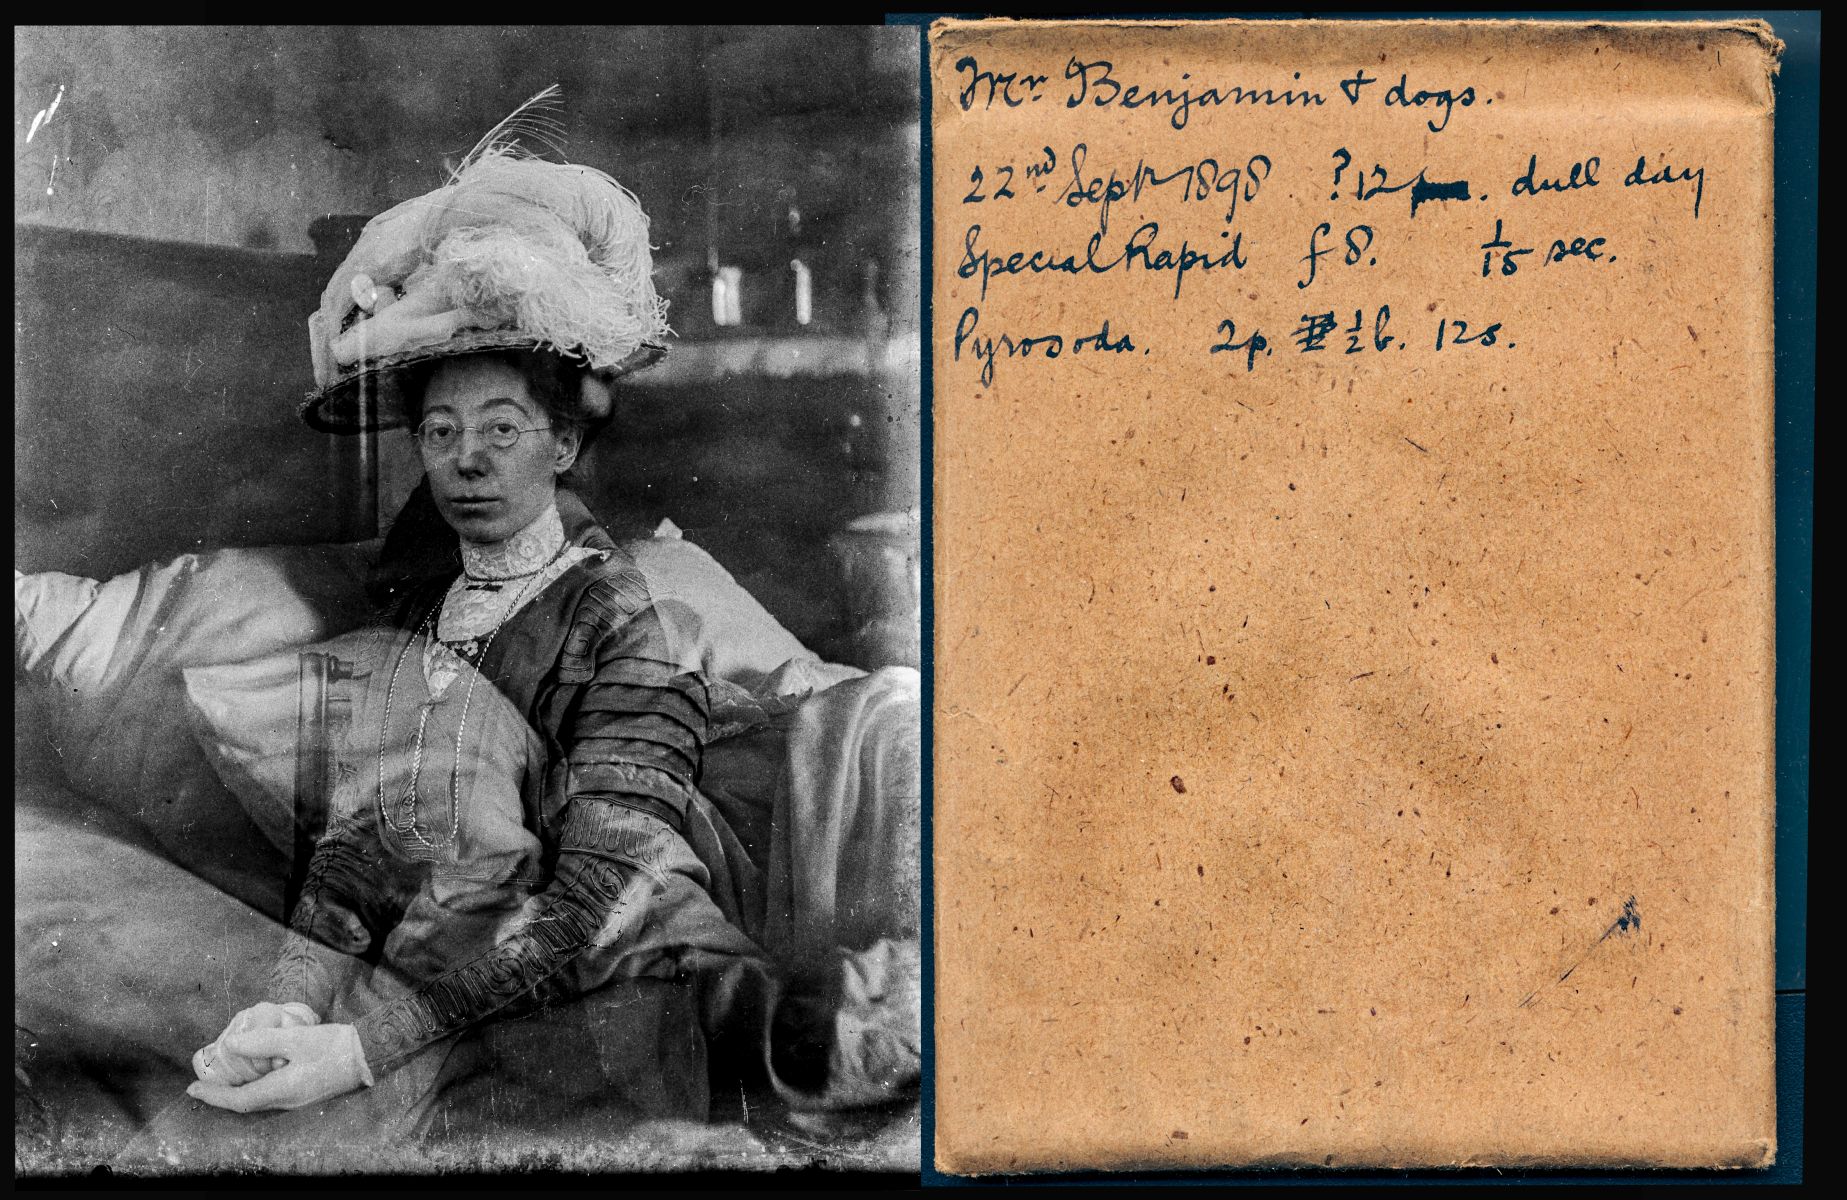 Mr Benjamin & dogs.
22nd Sept 1898 ?12 . dull day
Special Rapid f8. 1/15 sec.
Pyrosoda. 2p. 1/2 b. 12s.